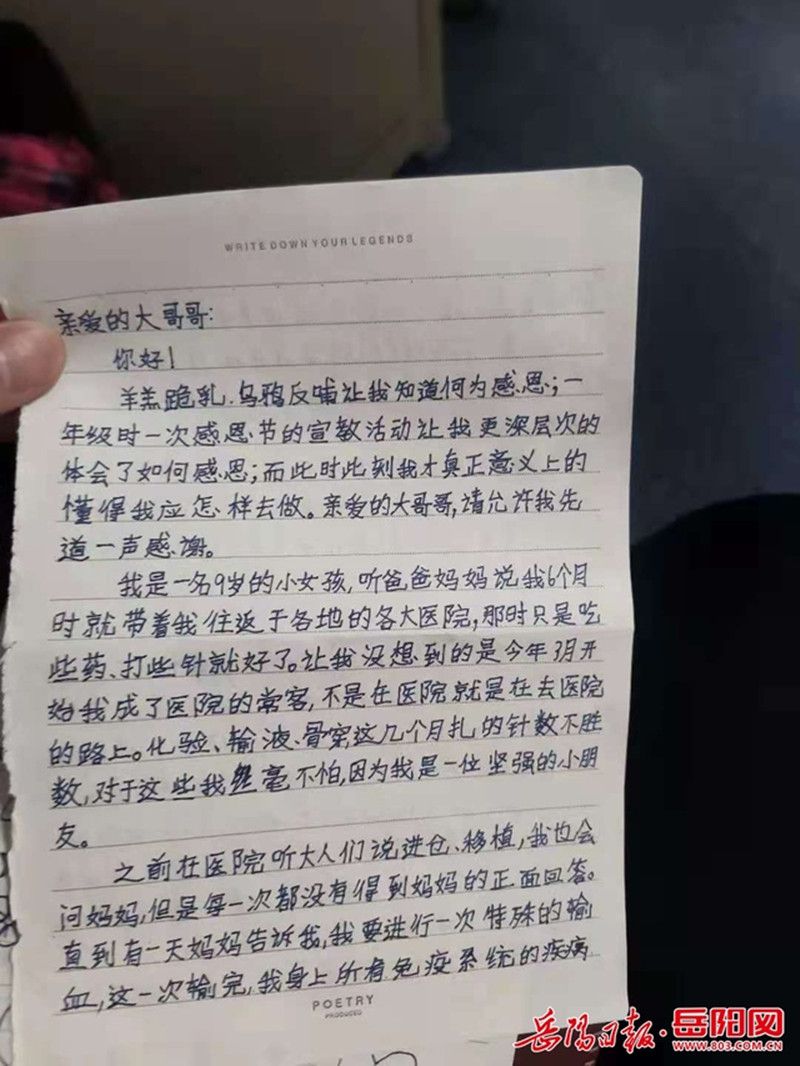 WRITE DOWN YOUR LEGENDS
亲爱的大哥哥:
你好!
羊羔跪乳、乌鸦反哺让我知道何为感恩;一
年级时一次感恩节的宣教活动让我更深层次的
体会了如何感恩;而此时此刻我才真正意义上的
懂得我应怎样去做。亲爱的大哥哥,请允许我先
道一声感谢。
我是一名9岁的小女孩,听爸爸妈妈说我6个月
时就带着我往返于各地的各大医院,那时只是吃
些药、打些针就好了。让我没想到的是今年3月开
始我成了医院的常客,不是在医院就是在去医院
的路上。化验、输液、骨穿,这几个月扎的针数不胜
数,对于这些我丝毫不怕,因为我是一位坚强的小朋
友。
之前在医院听大人们说进仓、移植,我也会
问妈妈,但是每一次都没有得到妈妈的正面回答。
直到有一天妈妈告诉我,我要进行一次特殊的输
血,这一次输完,我身上所有免疫系统的疾病
POETRY
PRODUCED
岳阳日报·岳阳网
WWW.803.COM.CN